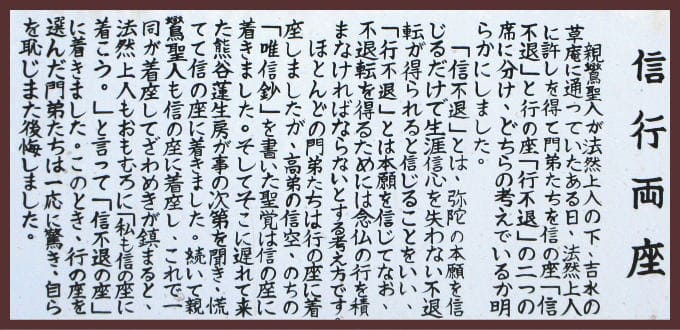 信行両座
親鸞聖人が法然上人の下、吉水の
草庵に通っていたある日、法然上人
に許しを得て門弟たちを信の座「信
不退」と行の座「行不退」の二つの
席に分け、どちらの考えでいるか明
らかにしました。
「信不退」とは、弥陀の本願を信
じるだけで生涯信心を失わない不退
転が得られると信じることをいい、
「行不退」とは本願を信じてなお、
不退転を得るためには念仏の行を積
まなければならないとする考え方です。
ほとんどの門弟たちは行の座に着
座しましたが、高弟の信空、のちの
「唯信鈔」を書いた聖覚は信の座に
着きました。そしてそこに遅れて来
た熊谷蓮生房が事の次第を聞き、慌
てて信の座に着きました。続いて親
鸞聖人も信の座に着座し、これで一
同が着座してざわめきが鎮まると、
法然上人もおもむろに「私も信の座に
着こう。」と言って「信不退の座」
に着きました。このとき、行の座を
選んだ門弟たちは一応に驚き、自ら
を恥じまた後悔しました。